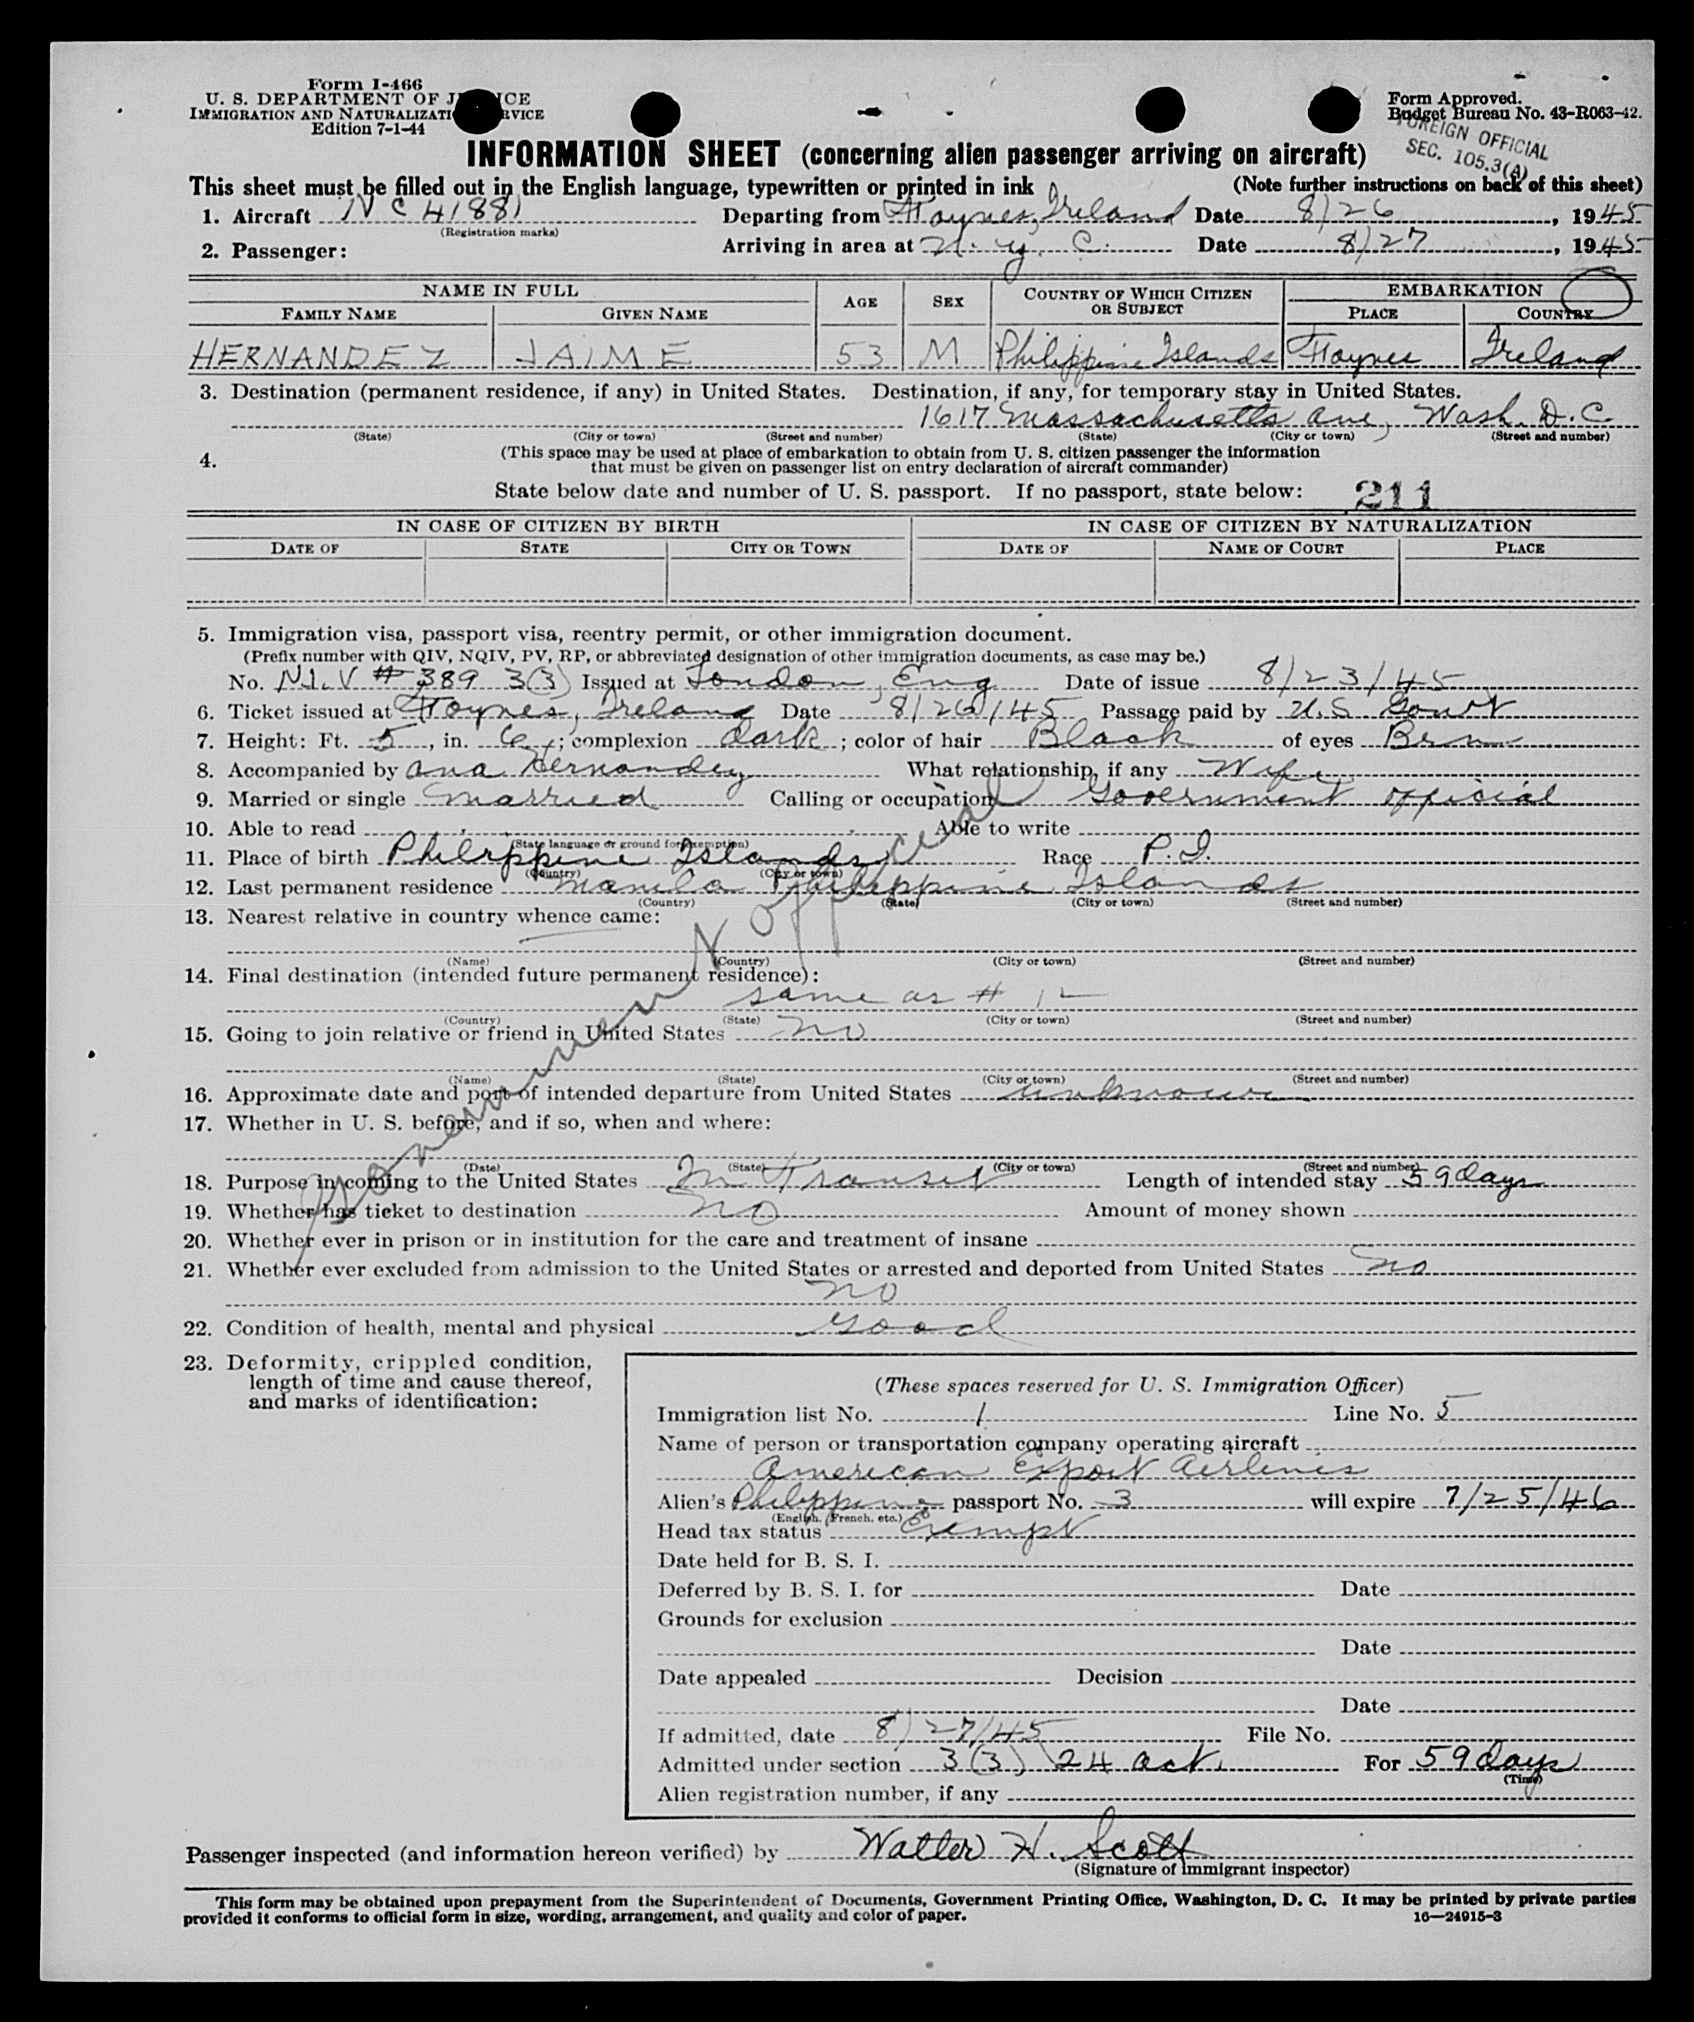 Form I-466
U. S. DEPARTMENT OF J CE
IMMIGRATION AND NATURALIZATI RVICE
Edition 7-1-44
Form Approved.
Budget Bureau No. 43-R063-42.
FOREIGN OFFICIAL
SEC. 105.3(A)
INFORMATION SHEET (concerning alien passenger arriving on aircraft)
This sheet must be filled out in the English language, typewritten or printed in ink (Note further instructions on back of this sheet)
1. Aircraft NC 41881 Departing from Foynes, Ireland Date 8/26, 1945
(Registration marks)
2. Passenger: Arriving in area at N. Y. C. Date 8/27, 1945
NAME IN FULL AGE SEX COUNTRY OF WHICH CITIZEN OR SUBJECT EMBARKATION
FAMILY NAME GIVEN NAME PLACE COUNTRY
HERNANDEZ JAIME 53 M Philippine Islands Foynes Ireland
3. Destination (permanent residence, if any) in United States. Destination, if any, for temporary stay in United States.
1617 Massachusetts Ave, Wash. D.C.
(State) (City or town) (Street and number) (State) (City or town) (Street and number)
4. (This space may be used at place of embarkation to obtain from U. S. citizen passenger the information
that must be given on passenger list on entry declaration of aircraft commander)
State below date and number of U. S. passport. If no passport, state below: 211
IN CASE OF CITIZEN BY BIRTH IN CASE OF CITIZEN BY NATURALIZATION
DATE OF STATE CITY OR TOWN DATE OF NAME OF COURT PLACE
5. Immigration visa, passport visa, reentry permit, or other immigration document.
(Prefix number with QIV, NQIV, PV, RP, or abbreviated designation of other immigration documents, as case may be.)
No. N.I.V # 389 3(3) Issued at London, Eng Date of issue 8/23/45
6. Ticket issued at Foynes, Ireland Date 8/26/45 Passage paid by U.S Gov't
7. Height: Ft. 5, in. 6; complexion dark; color of hair Black of eyes Brn
8. Accompanied by Ana Hernandez What relationship, if any Wife
9. Married or single Married Calling or occupation Government official
10. Able to read Able to write
(State language or ground for exemption)
11. Place of birth Philippine Islands Race P.I.
(Country) (City or town)
12. Last permanent residence Manila Philippine Islands
(Country) (State) (City or town) (Street and number)
13. Nearest relative in country whence came:
(Name) (Country) (City or town) (Street and number)
14. Final destination (intended future permanent residence):
same as # 12
(Country) (State) (City or town) (Street and number)
15. Going to join relative or friend in United States no
(Name) (State) (City or town) (Street and number)
16. Approximate date and port of intended departure from United States unknown
17. Whether in U. S. before, and if so, when and where:
(Date) (State) (City or town) (Street and number)
18. Purpose in coming to the United States In Transit Length of intended stay 59 days
19. Whether has ticket to destination No Amount of money shown
20. Whether ever in prison or in institution for the care and treatment of insane
21. Whether ever excluded from admission to the United States or arrested and deported from United States no
no
22. Condition of health, mental and physical good
Government Official
23. Deformity, crippled condition,
length of time and cause thereof,
and marks of identification:
(These spaces reserved for U. S. Immigration Officer)
Immigration list No. 1 Line No. 5
Name of person or transportation company operating aircraft
American Export Airlines
Alien's Philippine passport No. 3 will expire 7/25/46
(English, French, etc.)
Head tax status Exempt
Date held for B. S. I.
Deferred by B. S. I. for Date
Grounds for exclusion
Date
Date appealed Decision
Date
If admitted, date 8/27/45 File No.
Admitted under section 3(3) 24 act. For 59 days
(Time)
Alien registration number, if any
Passenger inspected (and information hereon verified) by Walter H. Scott
(Signature of immigrant inspector)
This form may be obtained upon prepayment from the Superintendent of Documents, Government Printing Office, Washington, D. C. It may be printed by private parties
provided it conforms to official form in size, wording, arrangement, and quality and color of paper. 16—24915-3